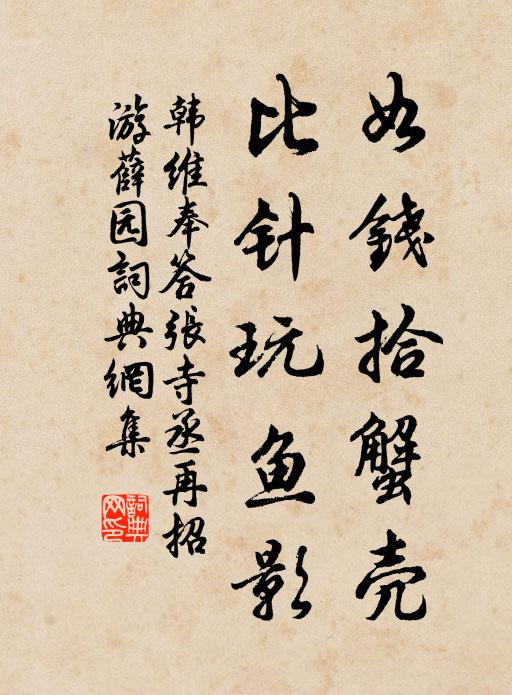 如錢拾蟹壳
比针玩鱼影
韩维奉答張寺丞再招
游薛园詞典網集
詞典网印